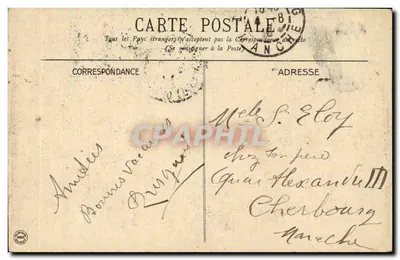 CARTE POSTALE
Tous les Pays étrangers n'acceptent pas la Correspondance au recto
(Se renseigner à la Poste)
CORRESPONDANCE
ADRESSE
Amitiés
Bonnes Vacances
Melle St Eloy
chez son père
Quai Alexandre III
Cherbourg
Manche
CPAPHIL